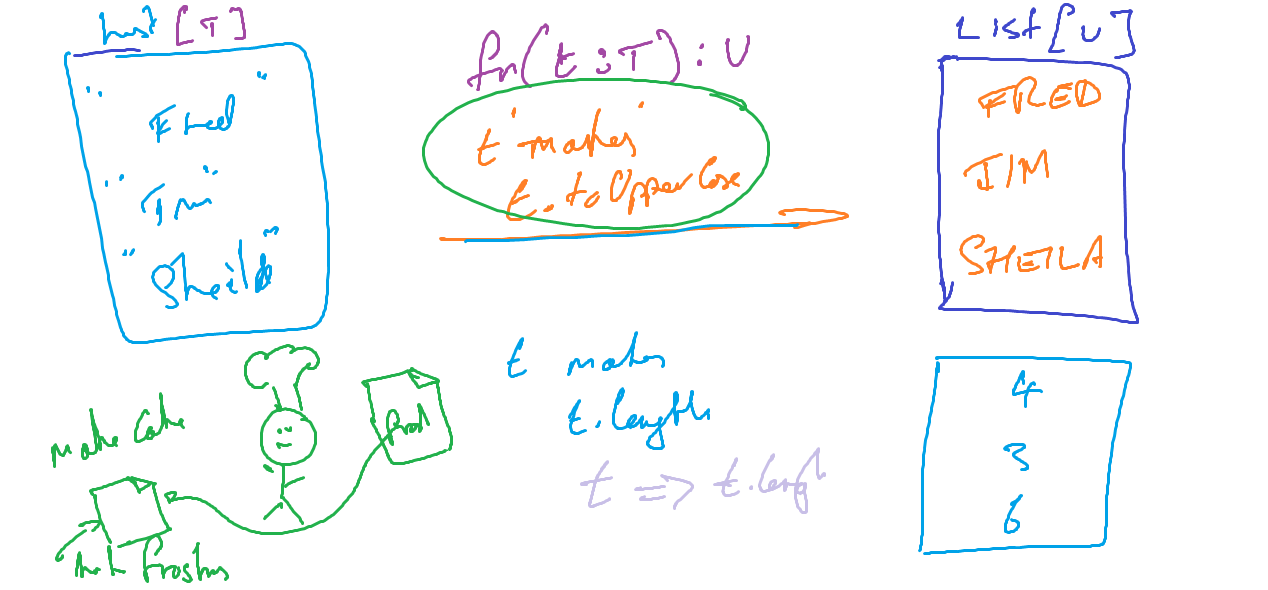 List [T]
"Fred"
"Jim"
"Sheila"
fn(t : T) : U
t "makes"
t.toUpperCase
List[U]
FRED
JIM
SHEILA
t makes
t.length
t => t.length
4
3
6
make Cake